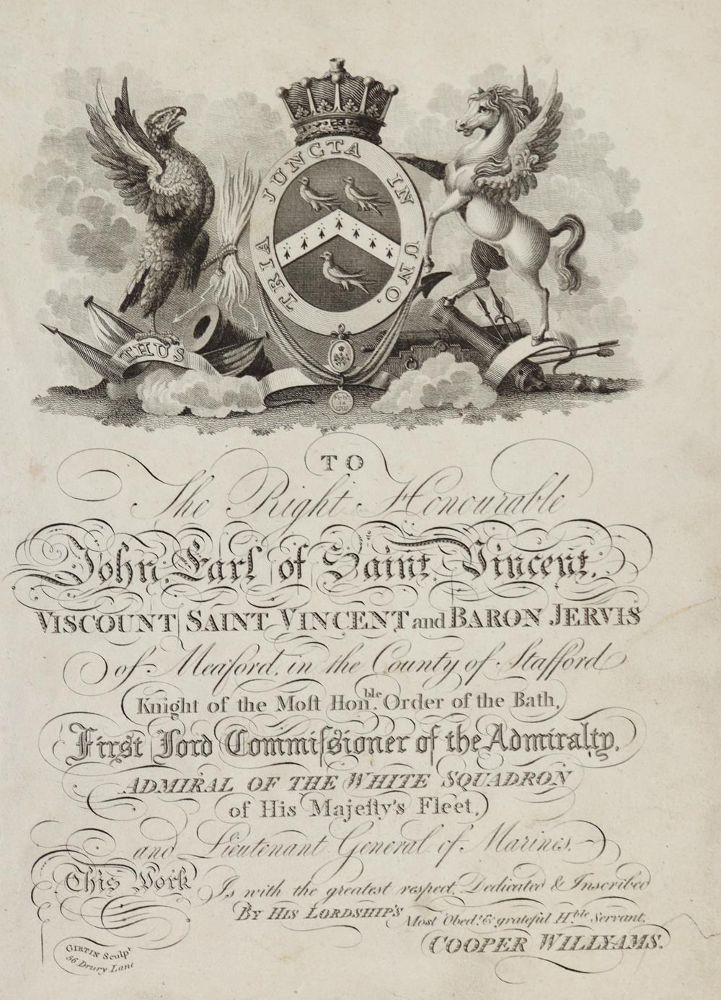 TRIA JUNCTA IN UNO.
THUS
TO
The Right Honourable
John, Earl of Saint Vincent,
VISCOUNT SAINT VINCENT, and BARON JERVIS
of Meaford, in the County of Stafford
Knight of the Moſt Hon.ble Order of the Bath,
First Lord Commiſsioner of the Admiralty,
ADMIRAL OF THE WHITE SQUADRON
of His Majeſty's Fleet,
and Lieutenant General of Marines.
This Work
Is with the greatest respect, Dedicated & Inscribed
BY HIS LORDSHIP'S Most Obed.t & grateful H.ble Servant,
COOPER WILLYAMS.
GIRTIN Sculp.t
56 Drury Lane